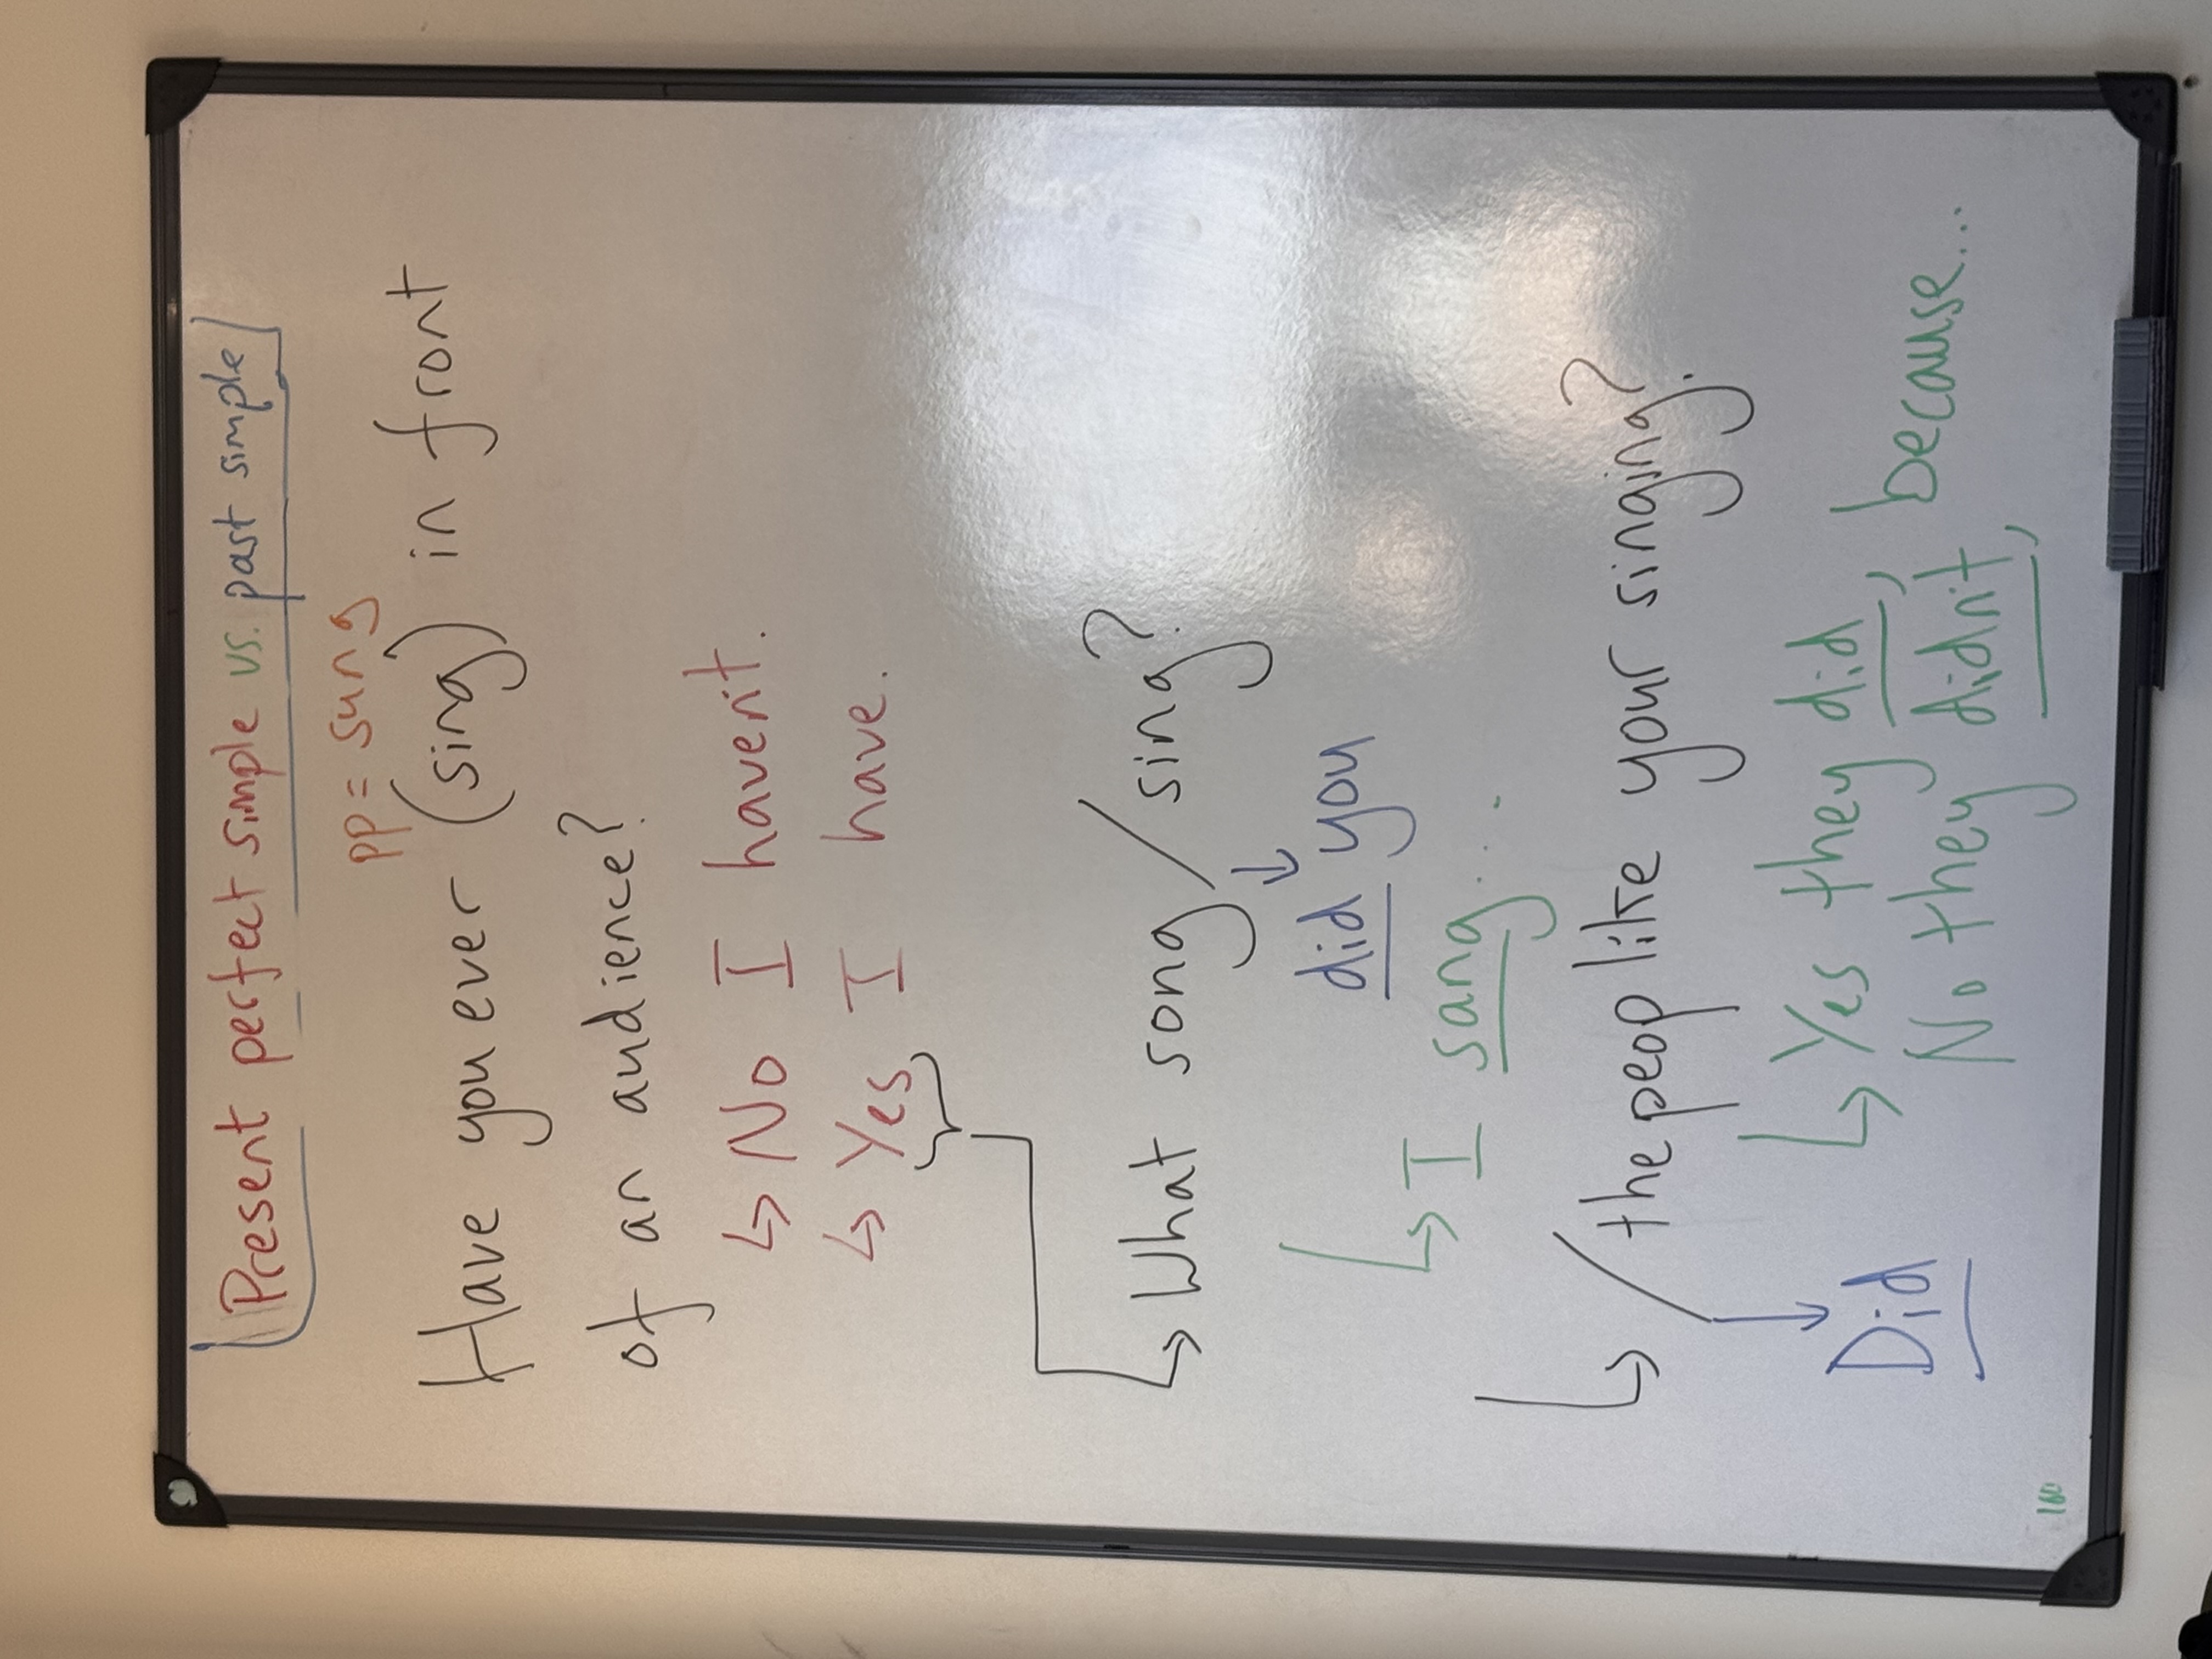 Present perfect simple vs. past simple
pp = sung
Have you ever (sing) in front
of an audience?
↳ No I haven't.
↳ Yes I have.
↳ What song / sing?
↓
did you
↳ I sang ...
↳ / the people like your singing?
↓
Did
↳ Yes they did, because...
No they didn't,